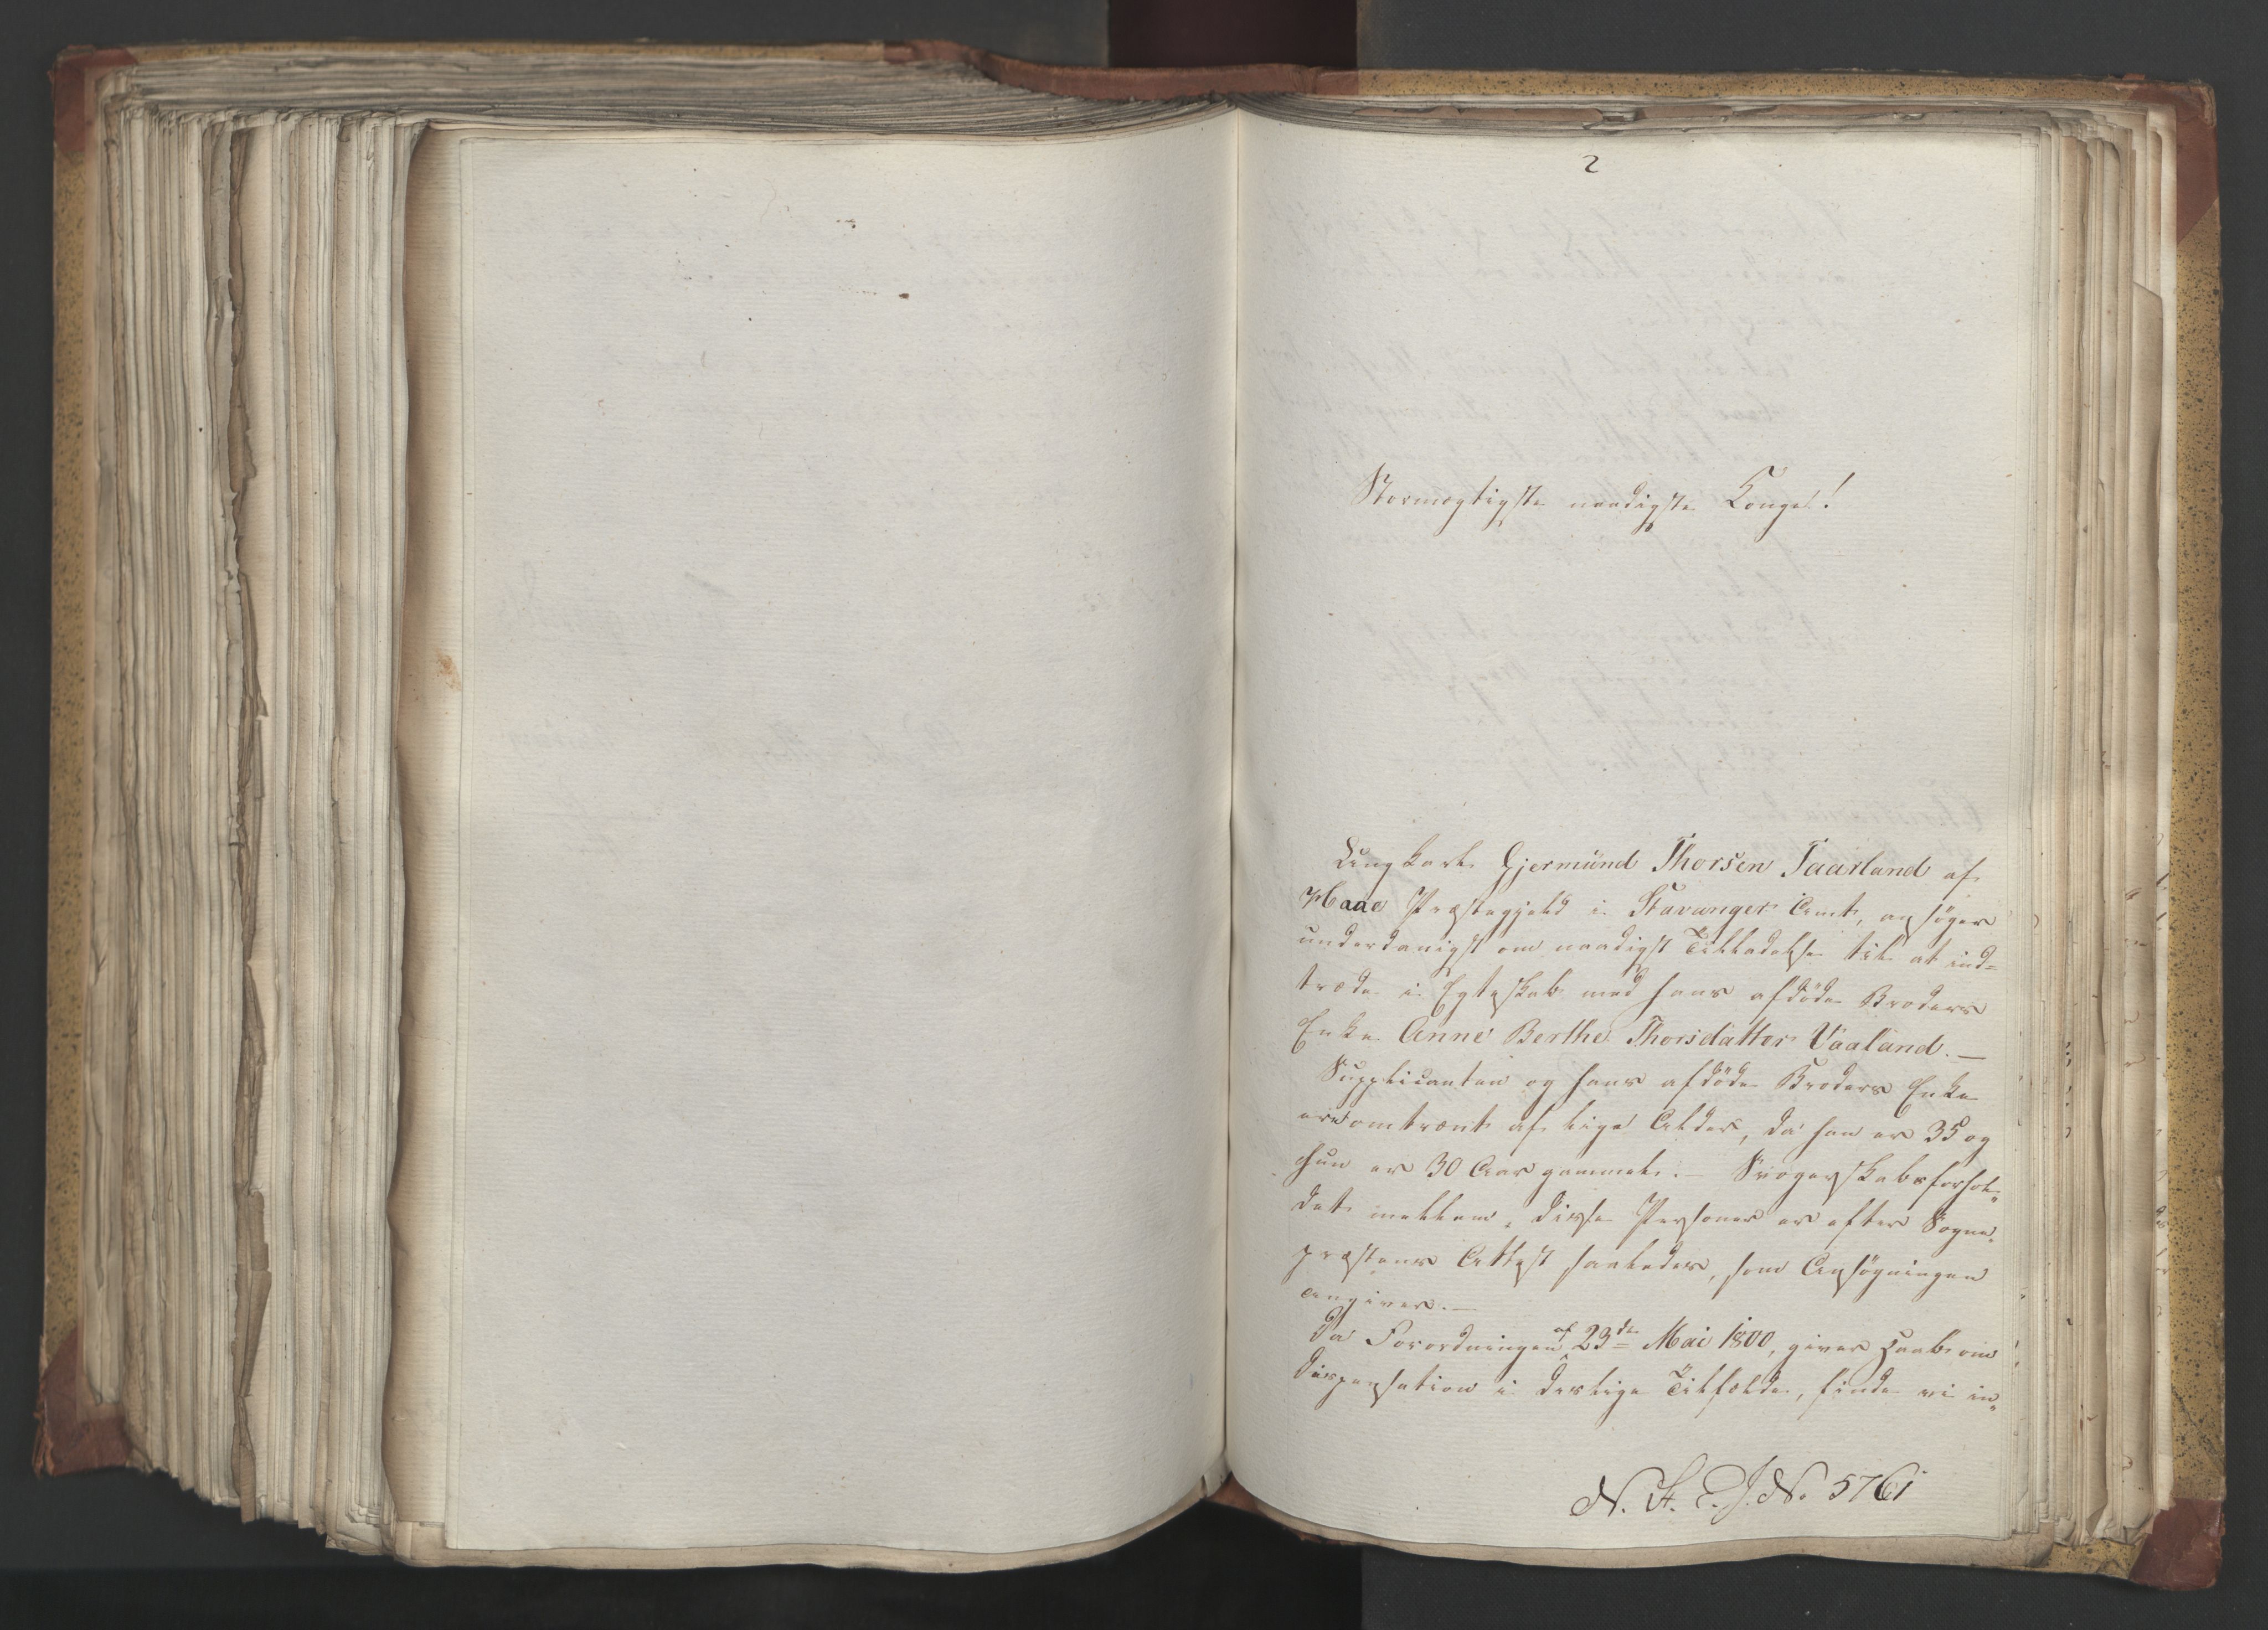 2
Stormægtigste naadigste Konge!
Ungkarl Gjermund Thorsen Taarland af
Haae Præstegjeld i Stavanger Amt, ansøger
underdanigst om naadigst Tilladelse til at ind=
træde i Egteskab med hans afdøde Broders
Enke Anne Berthe Thorsdatter Vaaland. —
Supplicanten og hans afdøde Broders Enke
ere omtrent af lige Alder, da han er 35 og
hun er 30 Aar gammel. — Svogerskabsforhol„
det mellem disse Personer er efter Sogne„
præstens Attest saaledes, som Ansøgningen
angiver. —
Da Forordningen af 23de Mai 1800, giver Haab om
Dispensation i deslige Tilfælde, finde vi in„
N. A. E. J. No 5761